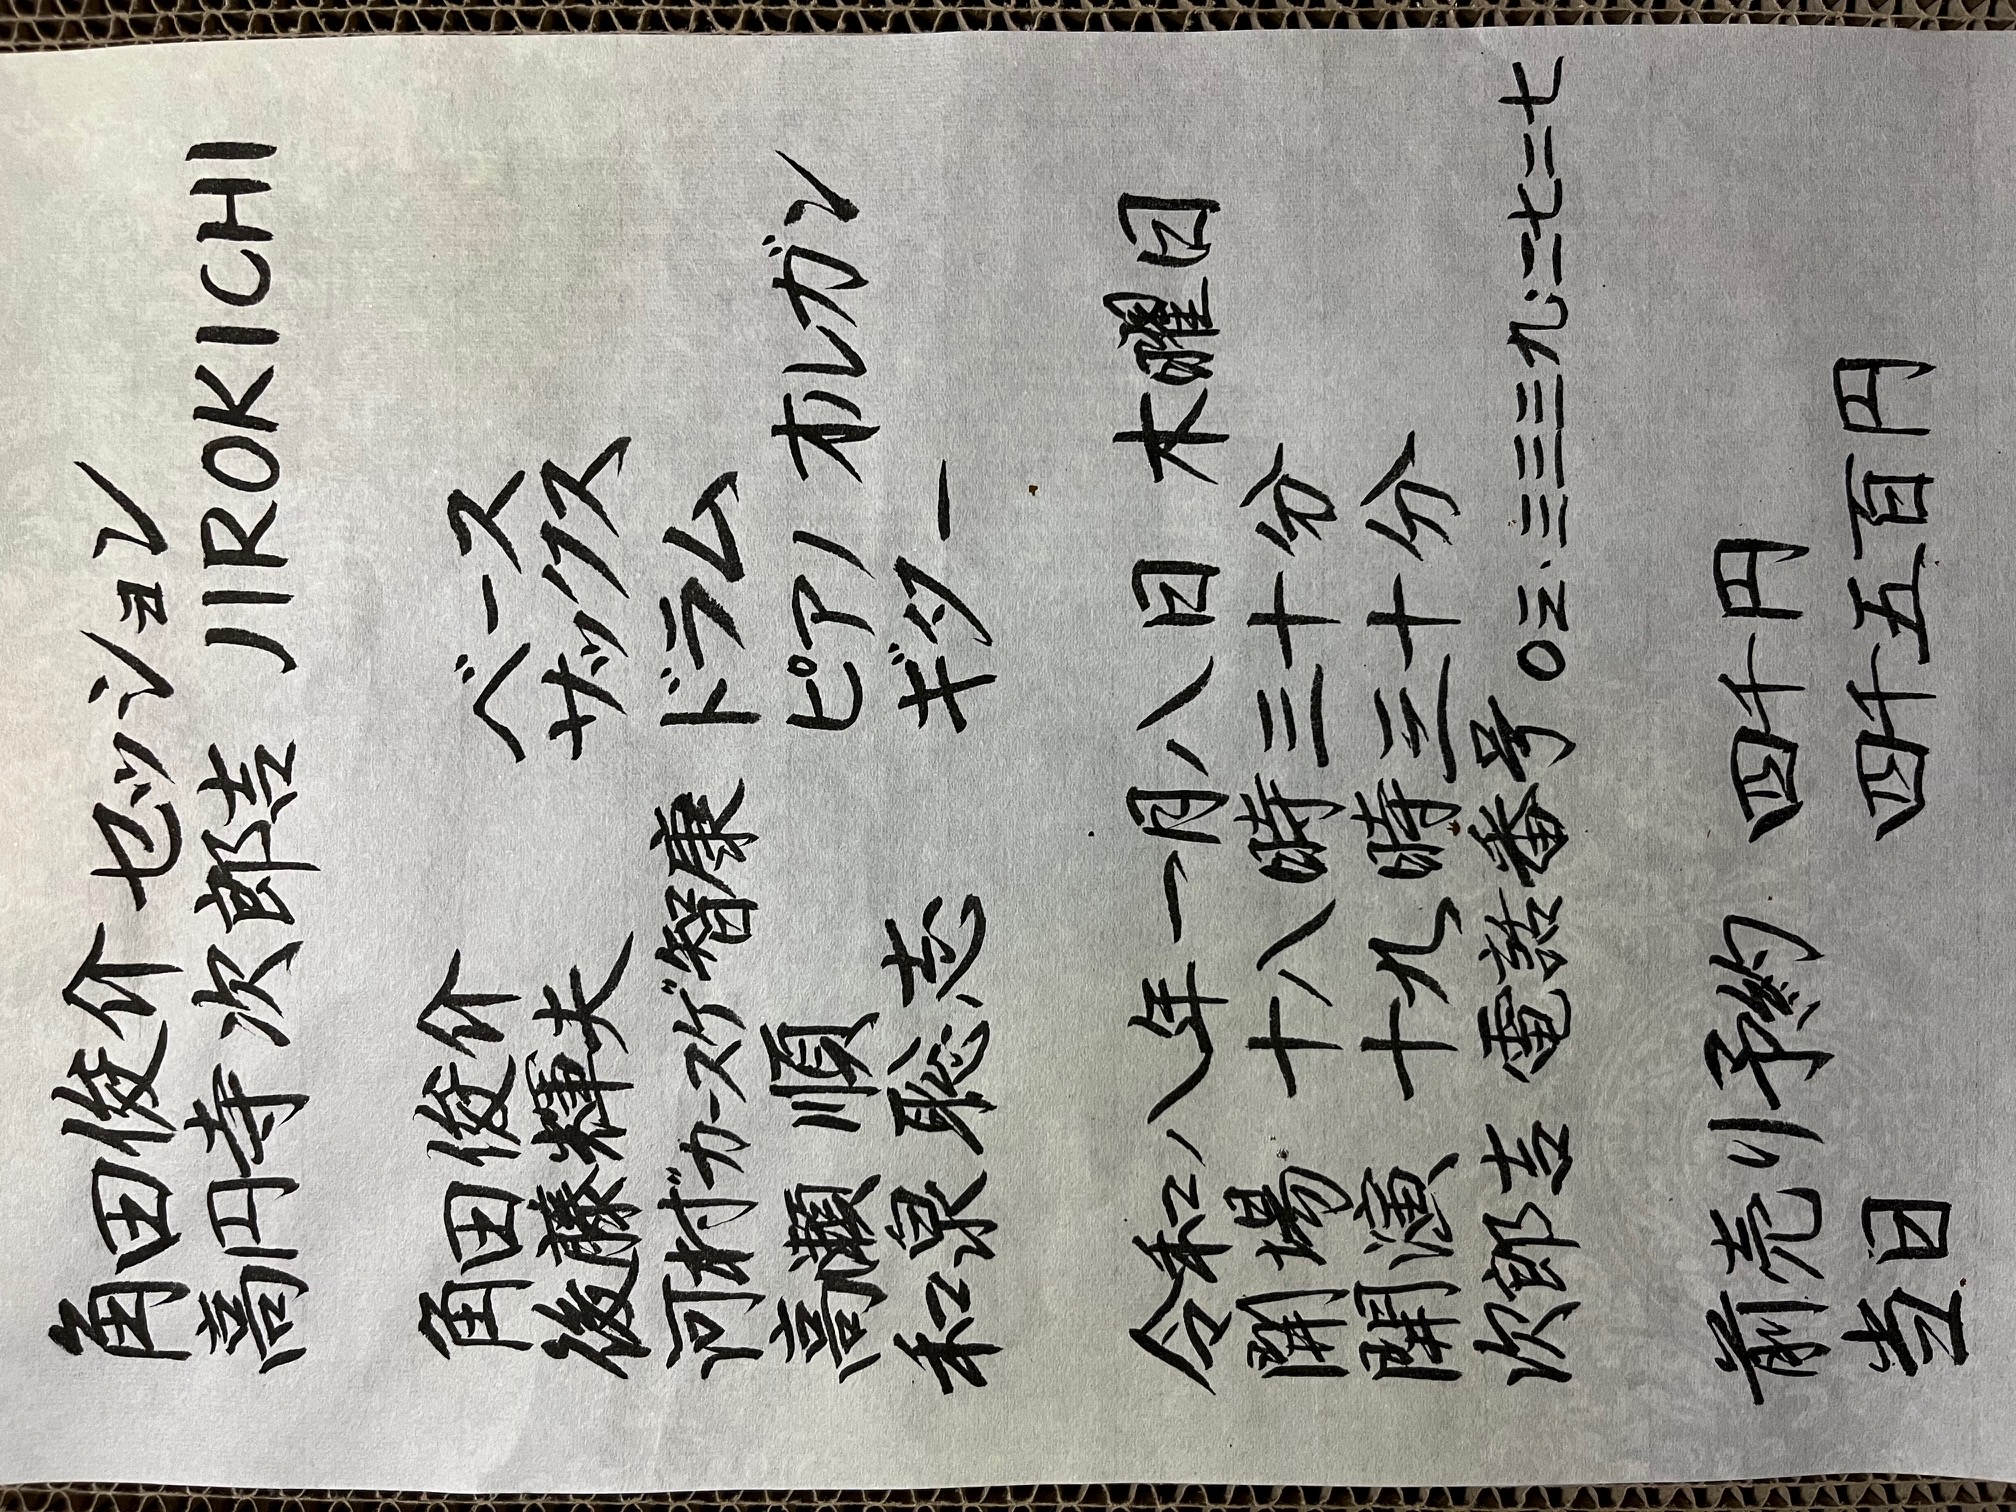 角田俊介 セッション
高円寺 次郎吉 JIROKICHI
角田俊介 ベース
後藤輝夫 サックス
河村ｶﾞｶースｹﾞ智康 ドラム
高瀬 順 ピアノ オルガン
和泉聡志 ギター
令和八年一月八日 木曜日
開場 十八時三十分
開演 十九時三十分
次郎吉 電話番号 〇三.三三三九.二七二七
前売り予約 四千円
当日 四千五百円